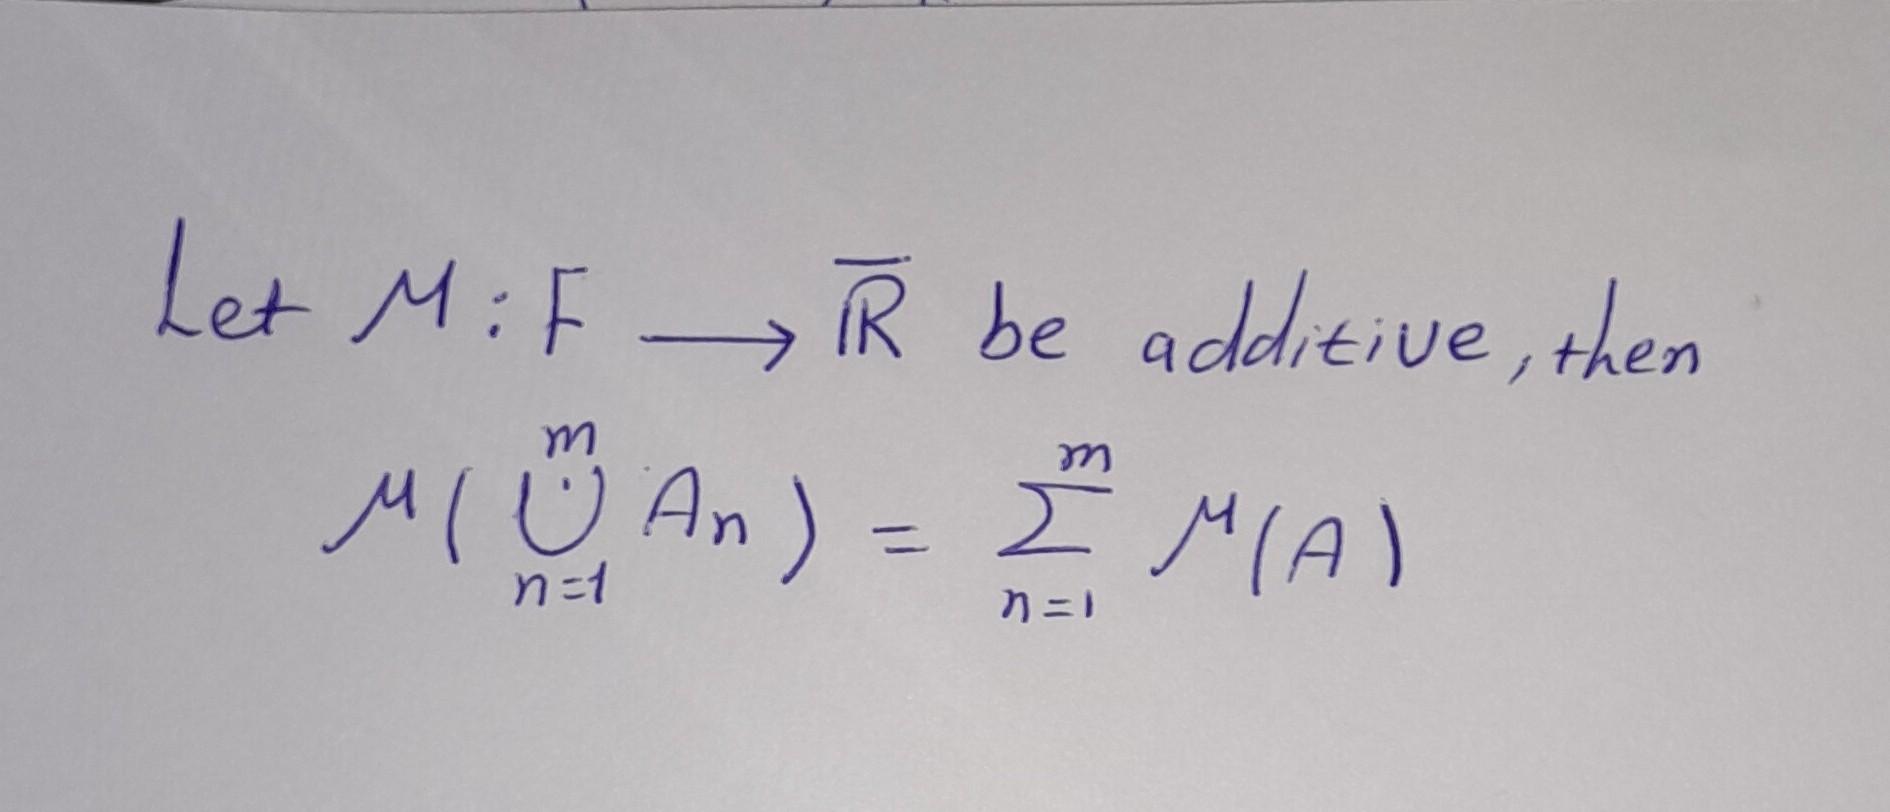 Let μ : F ⟶ ℝ̅ be additive, then
μ( ⨃_{n=1}^{m} A_n ) = Σ_{n=1}^{m} μ(A)